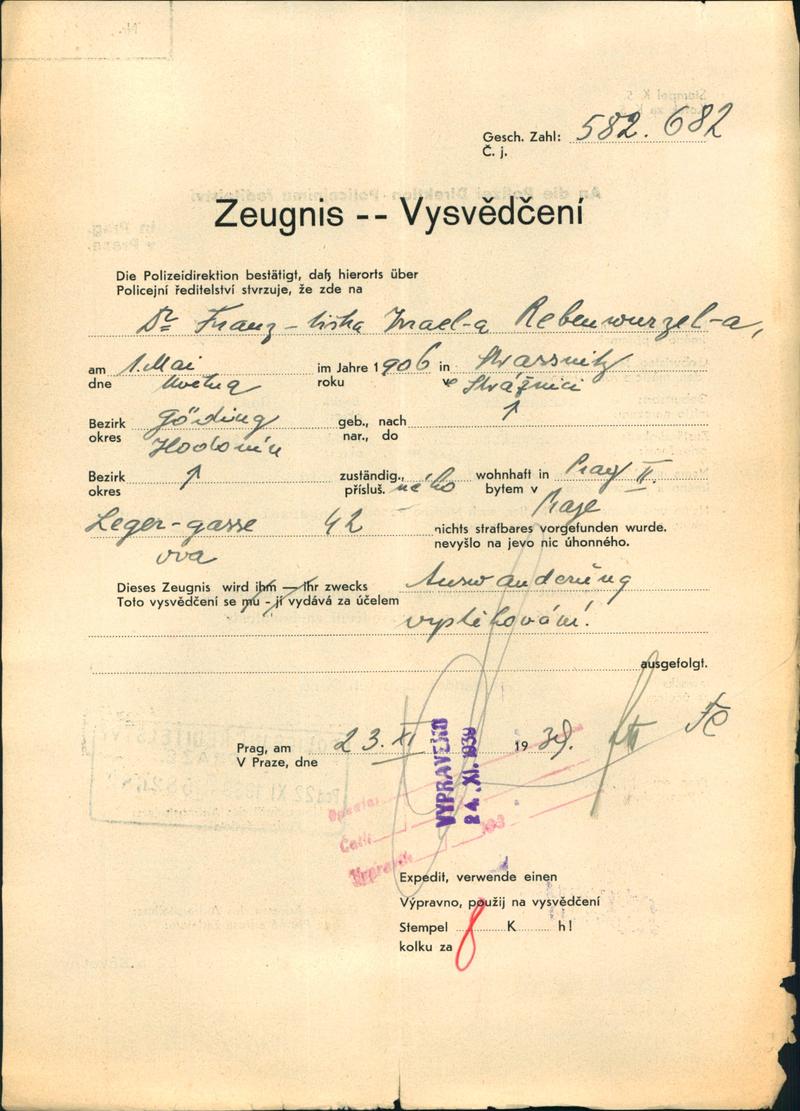 Gesch. Zahl: 582.682
Č. j.
Zeugnis -- Vysvědčení
Die Polizeidirektion bestätigt, daß hierorts über
Policejní ředitelství stvrzuje, že zde na
Dr Franz - tiška Israel-a Rebenwurzel-a,
am 1. Mai im Jahre 1906 in Strassnitz
dne května roku ve Strážnici
Bezirk Göding geb., nach ↑
okres Hodonín nar., do
Bezirk ↑ zuständig., wohnhaft in Prag II.
okres přísluš. ného bytem v Praze
Leger-gasse 42 nichts strafbares vorgefunden wurde.
ova nevyšlo na jevo nic úhonného.
Dieses Zeugnis wird ihm — ihr zwecks Auswanderung
Toto vysvědčení se mu - jí vydává za účelem
vystěhování!
ausgefolgt.
Prag, am 23. XI 1939.
V Praze, dne
VYPRAVENO
24. XI. 1939
Expedit, verwende einen
Výpravno, použij na vysvědčení
Stempel 8 K h!
kolku za